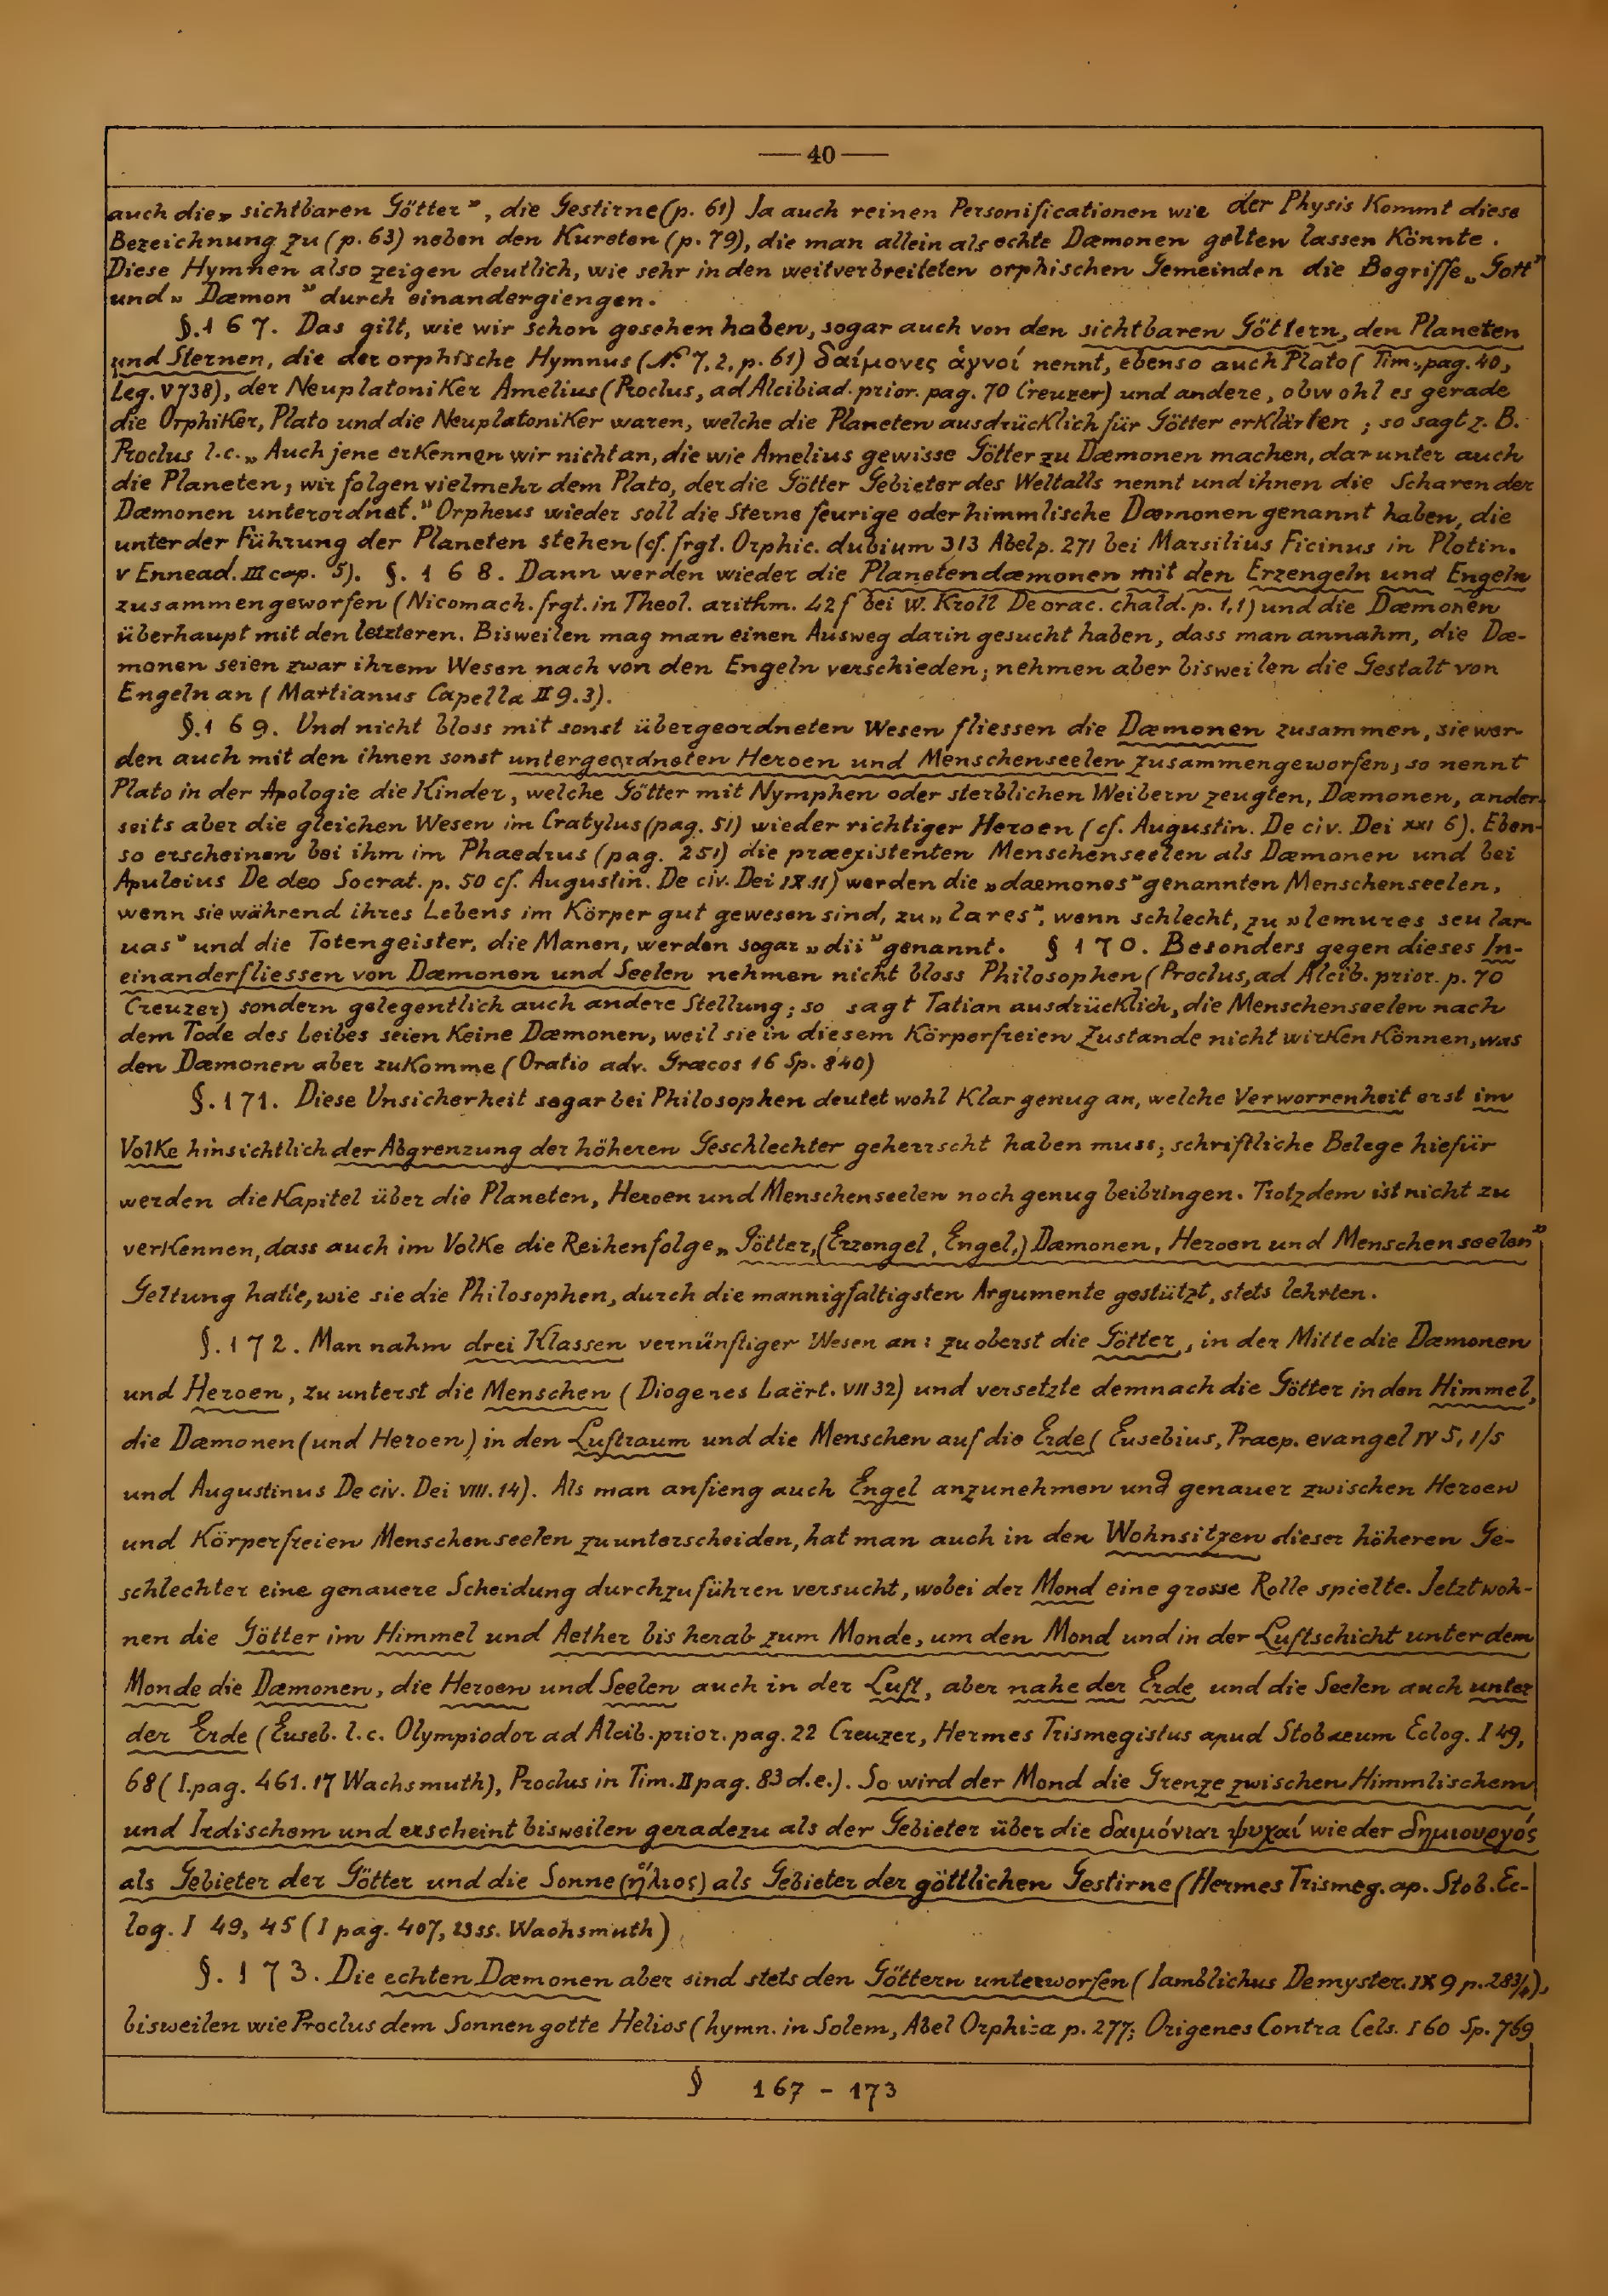 — 40 —
auch die „sichtbaren Götter”, die Gestirne (p. 61) Ja auch reinen Personificationen wie der Physis Kommt diese
Bezeichnung zu (p. 63) neben den Kureten (p. 79), die man allein als echte Dæmonen gelten lassen Könnte.
Diese Hymnen also zeigen deutlich, wie sehr in den weitverbreiteten orphischen Gemeinden die Begriffe „Gott”
und „Dæmon” durch einandergiengen.
§. 167. Das gilt, wie wir schon gesehen haben, sogar auch von den sichtbaren Göttern, den Planeten
und Sternen, die der orphische Hymnus (No 7, 2, p. 61) δαίμονες ἁγνοί nennt, ebenso auch Plato (Tim. pag. 40,
Leg. V 738), der Neuplatoniker Amelius (Proclus, ad Alcibiad. prior. pag. 70 Creuzer) und andere, obwohl es gerade
die Orphiker, Plato und die Neuplatoniker waren, welche die Planeten ausdrücklich für Götter erklärten; so sagt z. B.
Proclus l. c. „Auch jene erkennen wir nicht an, die wie Amelius gewisse Götter zu Dæmonen machen, darunter auch
die Planeten; wir folgen vielmehr dem Plato, der die Götter Gebieter des Weltalls nennt und ihnen die Scharen der
Dæmonen unterordnet.” Orpheus wieder soll die Sterne feurige oder himmlische Dæmonen genannt haben, die
unter der Führung der Planeten stehen (cf. frgt. Orphic. dubium 313 Abel p. 271 bei Marsilius Ficinus in Plotin.
V Ennead. III cap. 5). §. 168. Dann werden wieder die Planetendæmonen mit den Erzengeln und Engeln
zusammengeworfen (Nicomach. frgt. in Theol. arithm. 42 f bei W. Kroll De orac. chald. p. 1,1) und die Dæmonen
überhaupt mit den letzteren. Bisweilen mag man einen Ausweg darin gesucht haben, dass man annahm, die Dæ-
monen seien zwar ihrem Wesen nach von den Engeln verschieden; nehmen aber bisweilen die Gestalt von
Engeln an (Martianus Capella II 9.3).
§. 169. Und nicht bloss mit sonst übergeordneten Wesen fliessen die Dæmonen zusammen, sie wer-
den auch mit den ihnen sonst untergeordneten Heroen und Menschenseelen zusammengeworfen; so nennt
Plato in der Apologie die Kinder, welche Götter mit Nymphen oder sterblichen Weibern zeugten, Dæmonen, ander-
seits aber die gleichen Wesen im Cratylus (pag. 51) wieder richtiger Heroen (cf. Augustin. De civ. Dei XXI 6). Eben-
so erscheinen bei ihm im Phaedrus (pag. 251) die præexistenten Menschenseelen als Dæmonen und bei
Apuleius De deo Socrat. p. 50 cf. Augustin. De civ. Dei IX 11) werden die „daemones” genannten Menschenseelen,
wenn sie während ihres Lebens im Körper gut gewesen sind, zu „lares”, wenn schlecht, zu „lemures seu lar-
uas” und die Totengeister, die Manen, werden sogar „dii” genannt. § 170. Besonders gegen dieses In-
einanderfliessen von Dæmonen und Seelen nehmen nicht bloss Philosophen (Proclus, ad Alcib. prior. p. 70
Creuzer) sondern gelegentlich auch andere Stellung; so sagt Tatian ausdrücklich, die Menschenseelen nach
dem Tode des Leibes seien Keine Dæmonen, weil sie in diesem Körperfreien Zustande nicht wirken Können, was
den Dæmonen aber zukomme (Oratio adv. Græcos 16 Sp. 840)
§. 171. Diese Unsicherheit sogar bei Philosophen deutet wohl Klar genug an, welche Verworrenheit erst im
Volke hinsichtlich der Abgrenzung der höheren Geschlechter geherrscht haben muss; schriftliche Belege hiefür
werden die Kapitel über die Planeten, Heroen und Menschenseelen noch genug beibringen. Trotzdem ist nicht zu
verkennen, dass auch im Volke die Reihenfolge „Götter, (Erzengel, Engel,) Dæmonen, Heroen und Menschenseelen”
Geltung hatte, wie sie die Philosophen, durch die mannigfaltigsten Argumente gestützt, stets lehrten.
§. 172. Man nahm drei Klassen vernünftiger Wesen an: zu oberst die Götter, in der Mitte die Dæmonen
und Heroen, zu unterst die Menschen (Diogenes Laërt. VII 32) und versetzte demnach die Götter in den Himmel,
die Dæmonen (und Heroen) in den Luftraum und die Menschen auf die Erde (Eusebius, Praep. evangel IV 5, 1/5
und Augustinus De civ. Dei VIII. 14). Als man anfieng auch Engel anzunehmen und genauer zwischen Heroen
und Körperfreien Menschenseelen zu unterscheiden, hat man auch in den Wohnsitzen dieser höheren Ge-
schlechter eine genauere Scheidung durchzuführen versucht, wobei der Mond eine grosse Rolle spielte. Jetzt woh-
nen die Götter im Himmel und Aether bis herab zum Monde, um den Mond und in der Luftschicht unter dem
Monde die Dæmonen, die Heroen und Seelen auch in der Luft, aber nahe der Erde und die Seelen auch unter
der Erde (Euseb. l. c. Olympiodor ad Alcib. prior. pag. 22 Creuzer, Hermes Trismegistus apud Stobaeum Eclog. I 49,
68 (I. pag. 461. 17 Wachsmuth), Proclus in Tim. II pag. 83 d. e.). So wird der Mond die Grenze zwischen Himmlischem
und Irdischem und erscheint bisweilen geradezu als der Gebieter über die δαιμόνιαι ψυχαί wie der δημιουργός
als Gebieter der Götter und die Sonne (ἥλιος) als Gebieter der göttlichen Gestirne (Hermes Trismeg. ap. Stob. Ec-
log. I 49, 45 (I pag. 407, 23 ss. Wachsmuth)
§. 173. Die echten Dæmonen aber sind stets den Göttern unterworfen (Iamblichus De myster. IX 9 p. 283/4),
bisweilen wie Proclus dem Sonnengotte Helios (hymn. in Solem, Abel Orphica p. 277; Origenes Contra Cels. I 60 Sp. 769
§ 167 - 173